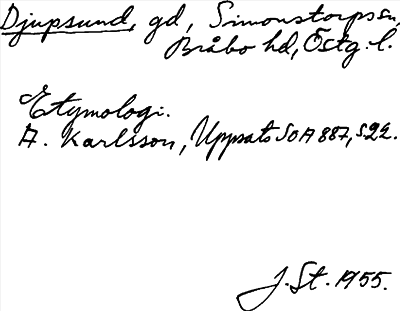 Djupsund, gd, Simonstorps sn,
Bråbo hd, Östg. l.
Etymologi.
A. Karlsson, Uppsats SOA 887, s. 22.
J. St. 1955.